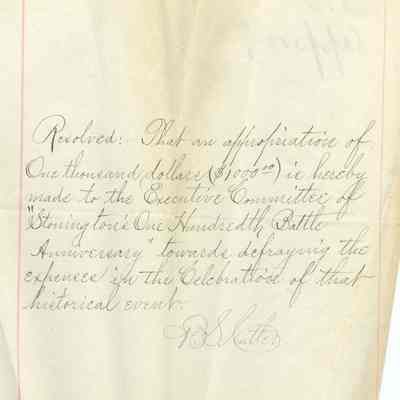 Resolved:- That an appropriation of
One thousand dollars ($1000.00) is hereby
made to the Executive Committee of
"Stonington's One Hundredth Battle
Anniversary" towards defraying the
expenses in the Celebration of that
historical event.
B S Cutler